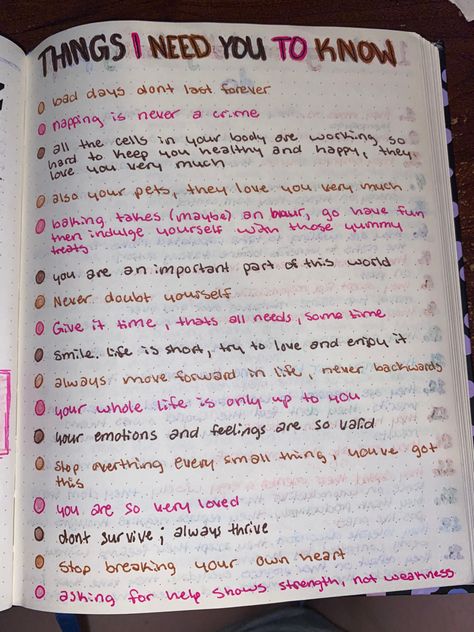 THINGS I NEED YOU TO KNOW
bad days dont last forever
napping is never a crime
all the cells in your body are working so
hard to keep you healthy and happy, they
love you very much
also your pets, they love you very much
baking takes (maybe) an hour, go have fun
then indulge yourself with those yummy
treats
you are an important part of this world
Never doubt yourself
Give it time, thats all needs, some time
smile. life is short, try to love and enjoy it
always move forward in life, never backwards
your whole life is only up to you
your emotions and feelings are so valid
stop overthing every small thing, you've got
this
you are so very loved
dont survive; always thrive
stop breaking your own heart
asking for help shows strength, not weakness